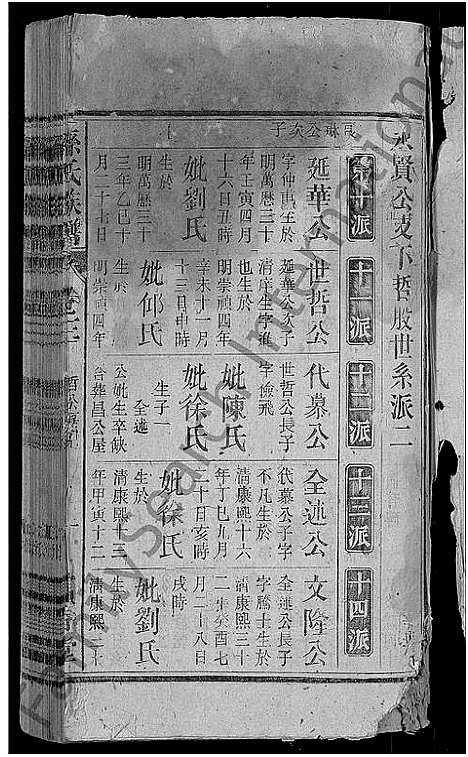 永賢公支下哲股世系派二
第十派
十一派
十二派
十三派
十四派
良琳公次子
延華公
明萬歷三十
年壬寅四月
十六日丑時
妣劉氏
生於
明萬歷三十
三年乙巳十
月二十七日
世哲公
延華公子
清庠生字
也生於
明崇禎四年
辛未十一月
十三日申時
妣仰氏
生於
明崇禎四年
代慕公
世哲公長子
字儉飛
妣陳氏
妣徐氏
生子一
全述
公妣生卒缺
合葬昌公屋
全述公
代慕公子字
不凡生於
清康熙十六
年丁巳九月
二十日亥時
妣徐氏
生於
清康熙十三
年甲寅十二
文隆公
全述公長子
字騰士生於
清康熙三十
二年癸酉七
月二十八日
戌時
妣劉氏
生於
清康熙三十
孫氏族譜
卷三
Mysearch International